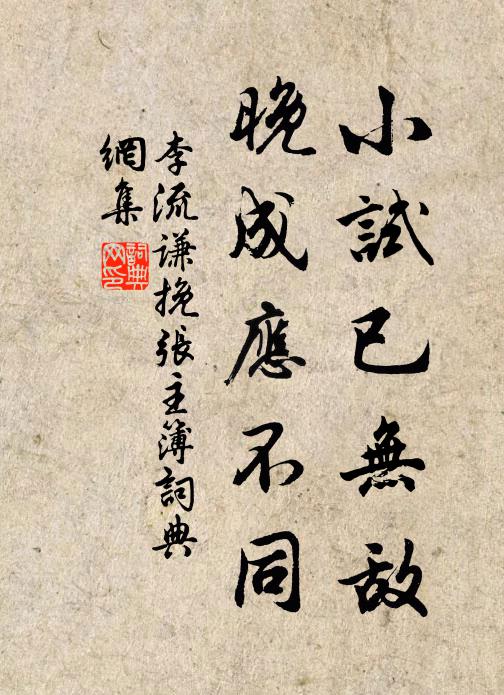 小試已無敌
晚成應不同
李流谦挽張主簿詞典
網集
詞典
网印